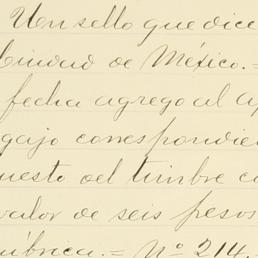 Un sello que dice
Ciudad de México.=
fecha agrego al ap
gajo correspondie
uesto del timbre co
valor de seis pesos
úbrica.= Nº 214.